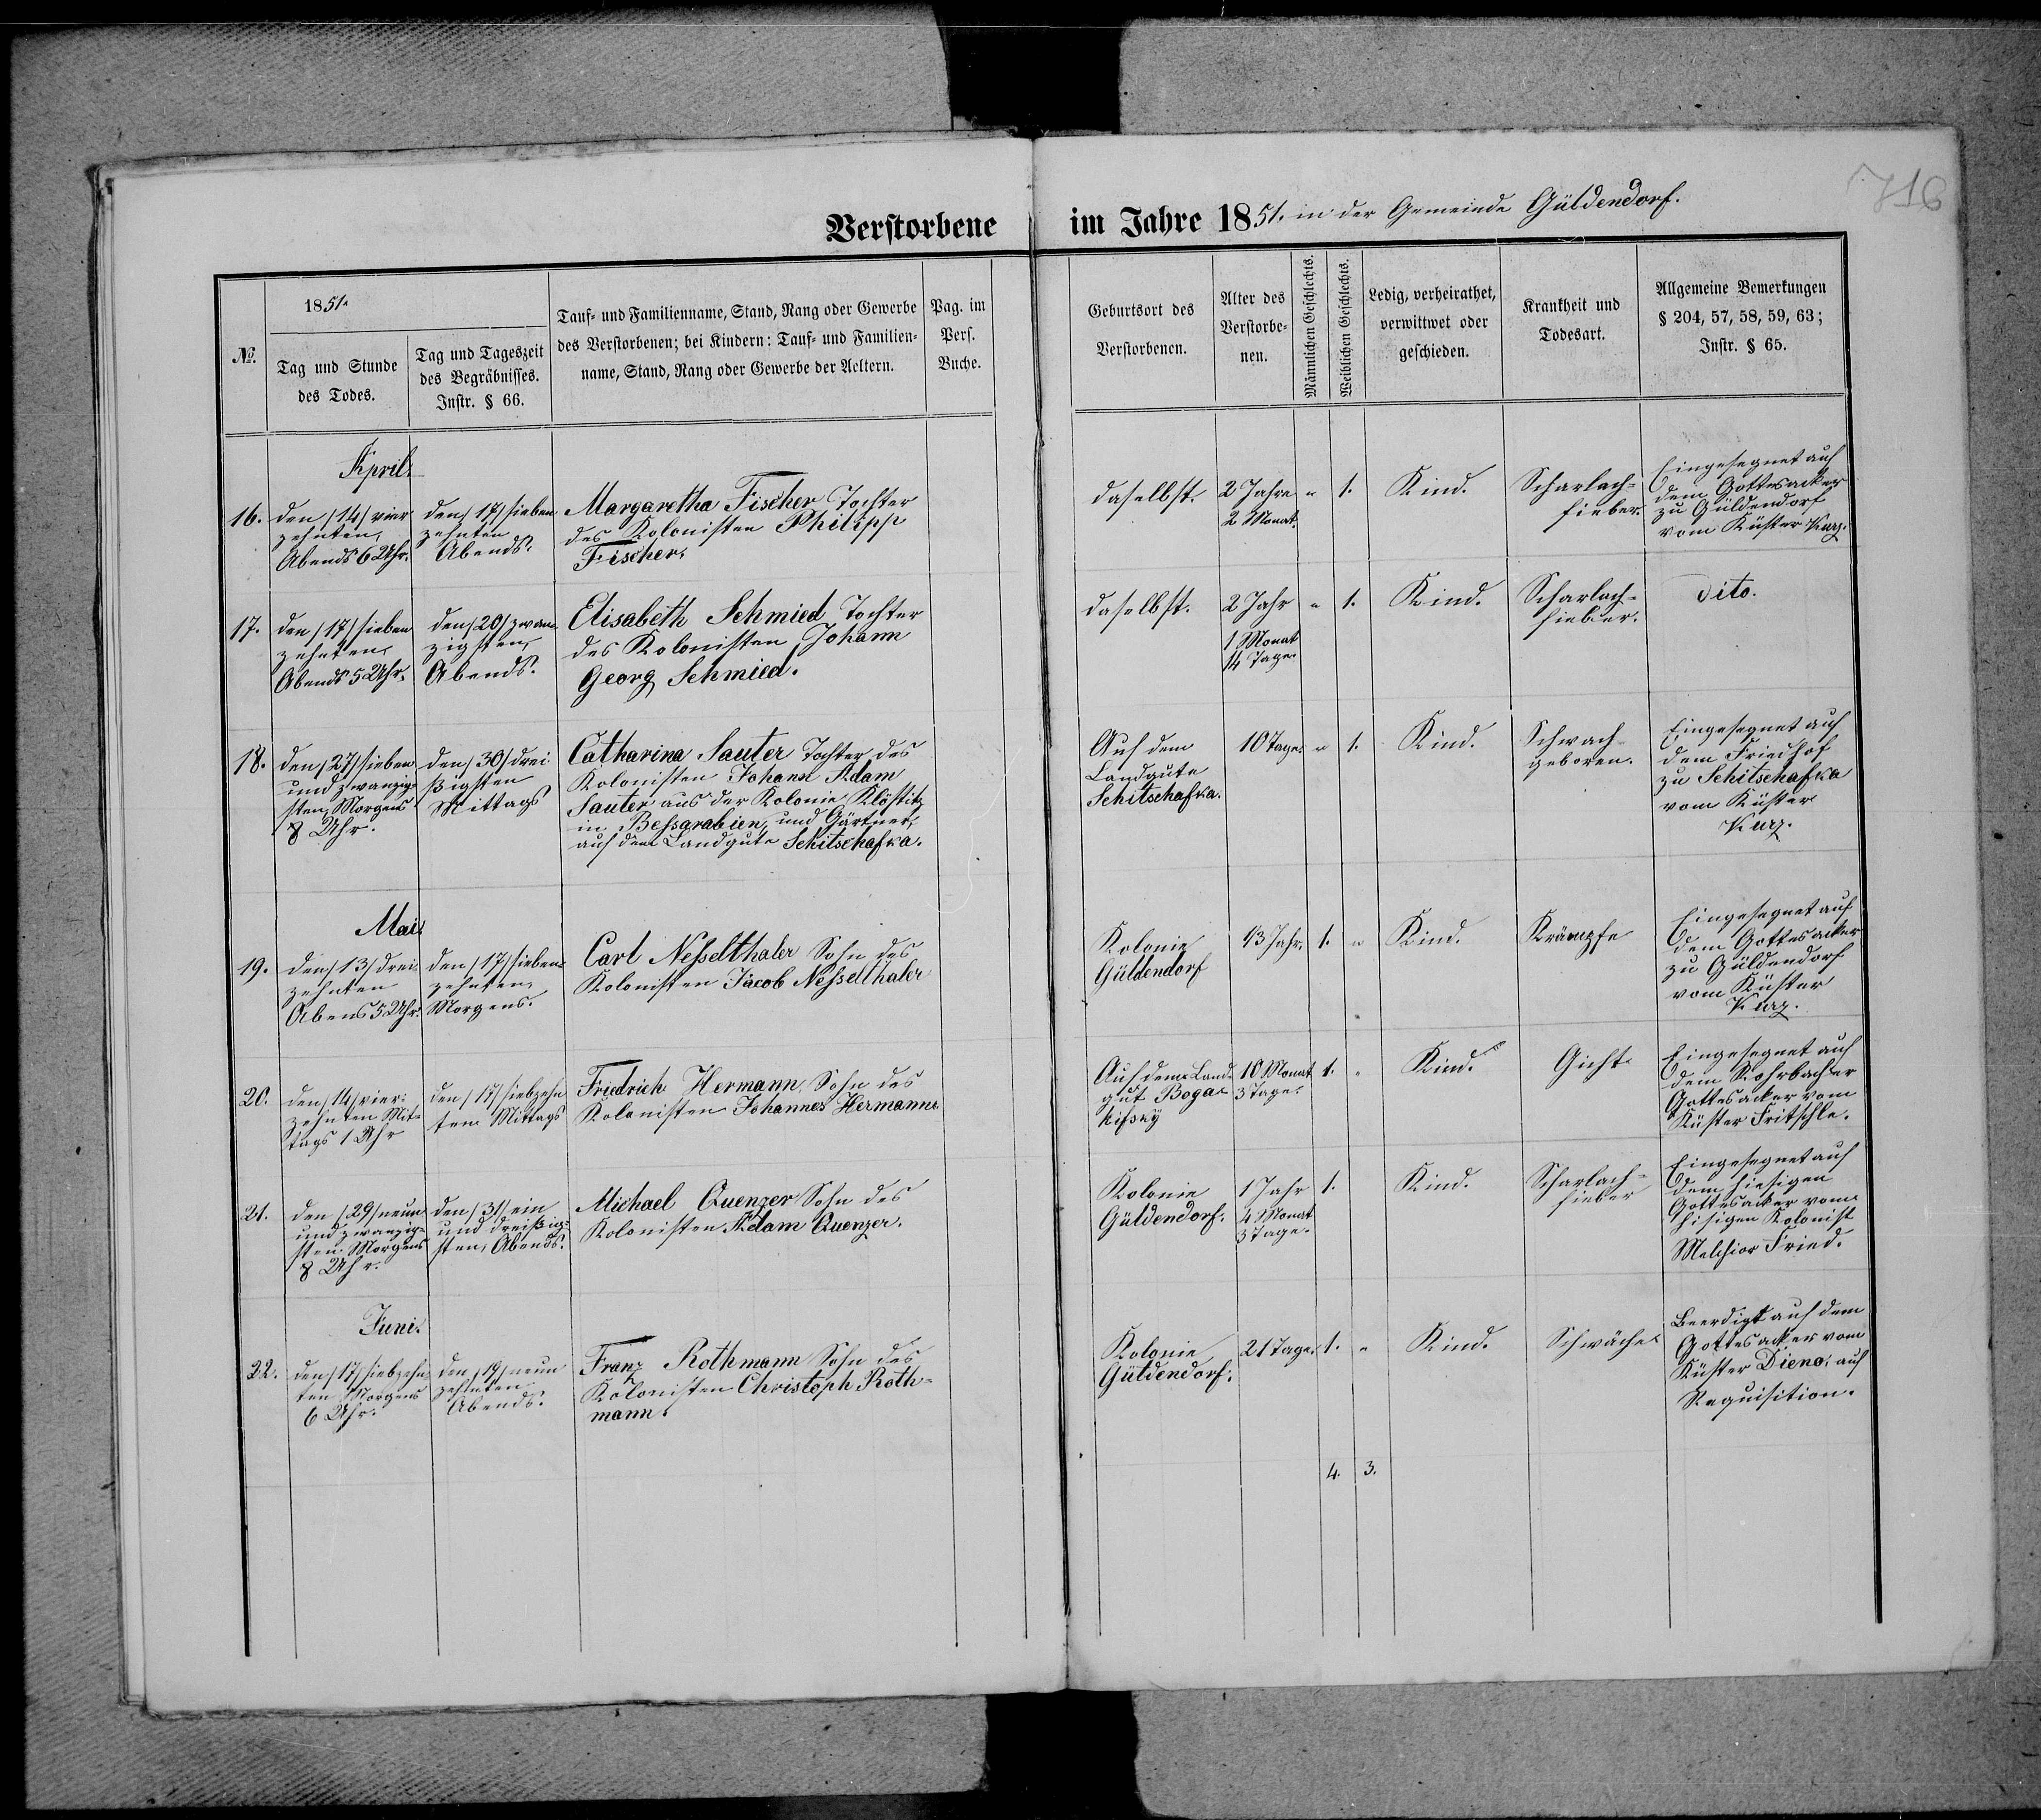 716
Verstorbene im Jahre 1851. in der Gemeinde Güldendorf.
№.
1851.
Tag und Stunde
des Todes.
Tag und Tageszeit
des Begräbnisses.
Instr. § 66.
Tauf- und Familienname, Stand, Rang oder Gewerbe
des Verstorbenen; bei Kindern: Tauf- und Familien-
name, Stand, Rang oder Gewerbe der Aeltern.
Pag. im
Pers.
Buche.
Geburtsort des
Verstorbenen.
Alter des
Verstorbe-
nen.
Männlichen Geschlechts.
Weiblichen Geschlechts.
Ledig, verheirathet,
verwittwet oder
geschieden.
Krankheit und
Todesart.
Allgemeine Bemerkungen
§ 204, 57, 58, 59, 63;
Instr. § 65.
April.
16.
den /14/ vier
zehnten,
Abends 6 Uhr.
den /17/ sieben
zehnten
Abends.
Margaretha Fischer Tochter
des Kolonisten Philipp
Fischer.
daselbst.
2 Jahre
2 Monat.
"
1.
Kind.
Scharlach-
fieber
Eingesegnet auf
dem Gottesacker
zu Güldendorf
vom Küster Kurz.
17.
den /17/ sieben
zehnten
Abends 5 Uhr.
den /20/ zwan
zigsten,
Abends.
Elisabeth Schmied Tochter
des Kolonisten Johann
Georg Schmied.
daselbst.
2 Jahr
1 Monat
14 Tage.
"
1.
Kind.
Scharlach-
fieber.
dito.
18.
den /27/ sieben
und zwanzig-
sten, Morgens
8 Uhr.
den /30/ drei
ßigsten
Mittags
Catharina Sauter Tochter des
Kolonisten Johann Adam
Sauter aus der Kolonie Klöstitz
in Bessarabien, und Gärtner,
auf dem Landgute Schitschafka.
Auf dem
Landgute
Schitschafka.
10 Tage.
"
1.
Kind.
Schwach
geboren.
Eingesegnet auf
dem Friedhof
zu Schitschafka
vom Küster
Kurz.
Mai
19.
den /13/ drei
zehnten
Abens 5 Uhr.
den /17/ sieben
zehnten
Morgens.
Carl Nesselthaler Sohn des
Kolonisten Jacob Nesselthaler
Kolonie
Güldendorf
13 Jahr.
1.
"
Kind.
Krämpfe
Eingesegnet auf
dem Gottesacker
zu Güldendorf
vom Küster
Kurz.
20.
den /14/ vier-
zehnten Mit-
tags 1 Uhr
den /17/ siebzehn
ten Mittags
Friedrich Hermann, Sohn des
Kolonisten Johannes Hermann.
Auf dem Land-
gut Boga-
kifsky
10 Monat
3 Tage.
1.
"
Kind.
Gicht
Eingesegnet auf
dem Rohrbacher
Gottesacker vom
Küster Fritschle.
21.
den /29/ neun
und zwanzig-
sten Morgens
8 Uhr.
den /31/ ein
und dreißig-
sten, Abends.
Michael Quenzer Sohn des
Kolonisten Adam Quenzer.
Kolonie
Güldendorf.
1 Jahr
4 Monat
3 Tage.
1.
Kind.
Scharlach-
fieber
Eingesegnet auf
dem hiesigen
Gottesacker vom
hisigen Kolonist
Melchior Fried.
Juni.
22.
den /17/ siebzehn
ten Morgens
6 Uhr.
den /19/ neun
zehnten
Abends.
Franz Rothmann Sohn des
Kolonisten Christoph Roth-
mann.
Kolonie
Güldendorf.
21 Tage.
1.
"
Kind.
Schwäche
Beerdigt auf dem
Gottesacker vom
Küster Dieno, auf
Requisition.
4.
3.